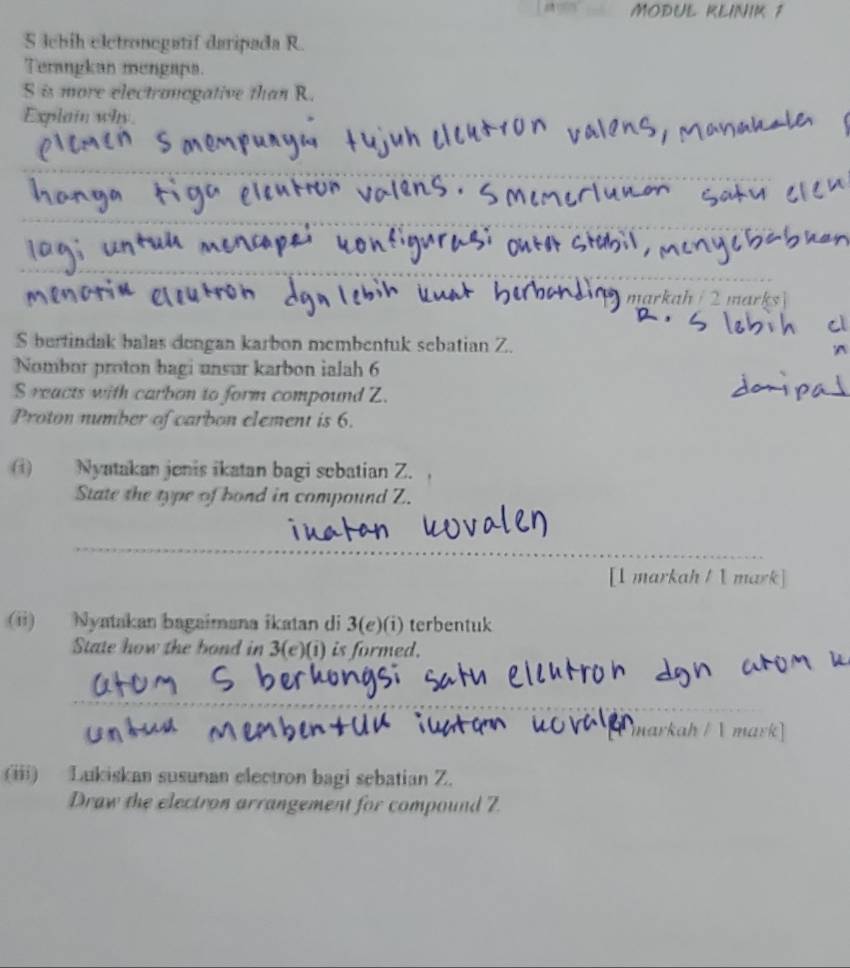 MODUL KLINIK 1
S lebih eletronegatif daripada R.
Terangkan mengapa.
S is more electronegative than R.
Explain why.
elemen S mempunyai tujuh elektron valens, manakala
hanya tiga elektron valens. S memerlukan satu elek
lagi untuk mencapai konfigurasi oktet stabil, menyebabkan
menarik elektron dgn lebih kuat berbanding markah / 2 marks]
R. S lebih el
n
daripad
S bertindak balas dengan karbon membentuk sebatian Z.
Nombor proton bagi unsur karbon ialah 6
S reacts with carbon to form compound Z.
Proton number of carbon element is 6.
(i) Nyatakan jenis ikatan bagi sebatian Z.
State the type of bond in compound Z.
ikatan kovalen
[1 markah / 1 mark]
(ii) Nyatakan bagaimana ikatan di 3(e)(i) terbentuk
State how the bond in 3(e)(i) is formed.
atom S berkongsi satu elektron dgn atom k
untuk membentuk ikatan kovalen markah / 1 mark]
(iii) Lukiskan susunan electron bagi sebatian Z.
Draw the electron arrangement for compound Z